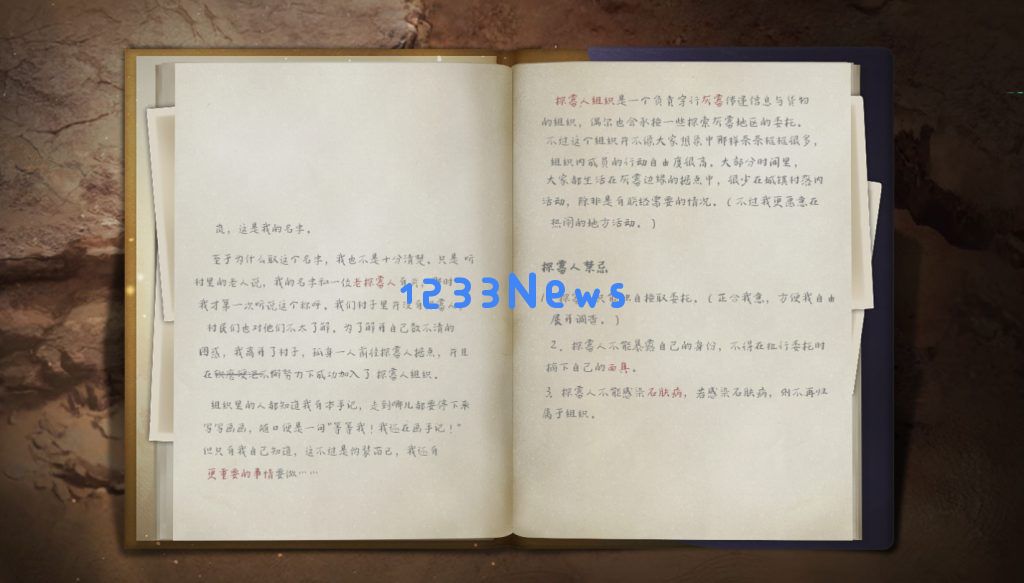 岚，这是我的名字。
至于为什么取这个名字，我也不是十分清楚。只是听
村里的老人说，我的名字和一位老探雾人有关。那时
我才第一次听说这个称呼。我们村子里并没有探雾人
村民们也对他们不太了解。为了解开自己数不清的
困惑，我离开了村子，孤身一人前往探雾人据点，并且
在软磨硬泡不懈努力下成功加入了探雾人组织。
组织里的人都知道我有本手记，走到哪儿都要停下来
写写画画，随口便是一句“等等我！我还在画手记！”
但只有我自己知道，这不过是伪装而已，我还有
更重要的事情要做……
探雾人组织是一个负责穿行灰雾传递信息与货物
的组织，偶尔也会承接一些探索灰雾地区的委托。
不过这个组织并不像大家想象中那样条条框框很多，
组织内成员的行动自由度很高。大部分时间里，
大家都生活在灰雾边缘的据点中，很少在城镇村落内
活动，除非是有职经需要的情况。（不过我更愿意在
热闹的地方活动。）
探雾人禁忌
1233News
1. 探雾人只能独自接取委托。（正合我意，方便我自由
展开调查。）
2. 探雾人不能暴露自己的身份，不得在执行委托时
摘下自己的面具。
3. 探雾人不能感染石肤病，若感染石肤病，则不再归
属于组织。